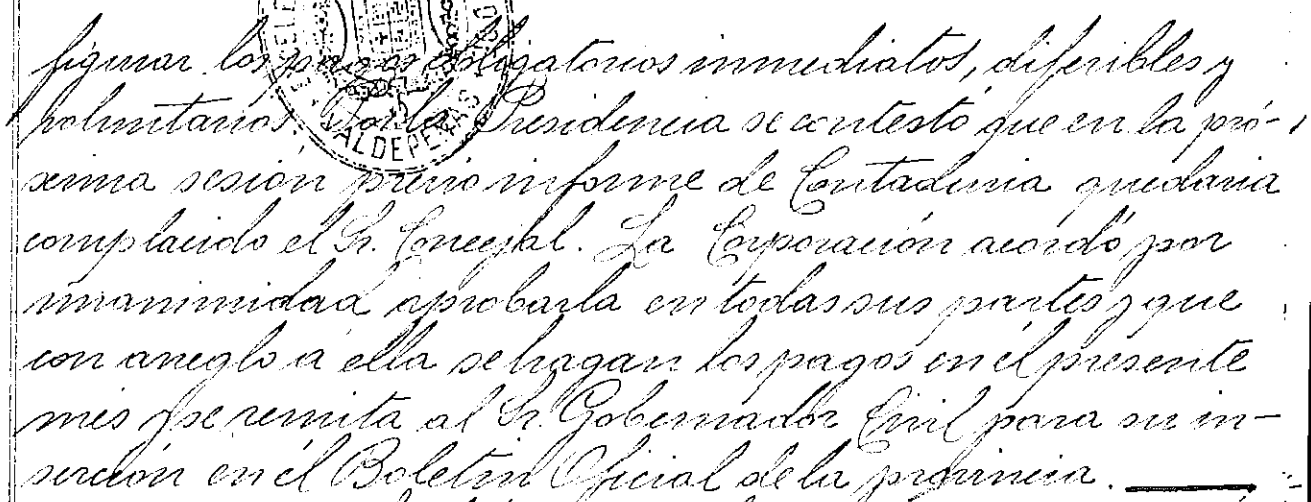 figurar los pagos obligatorios inmediatos, diferibles y
voluntarios. Por la Presidencia se contestó que en la pró-
xima sesión previo informe de Contaduria quedaria
complacido el Sr. Concejal. La Corporación acordó por
unanimidad aprobarla en todas sus partes y que
con arreglo a ella se hagan los pagos en el presente
mes y se remita al Sr. Gobernador Civil para su in-
serción en el Boletin Oficial de la provincia.
VALDEPEÑAS